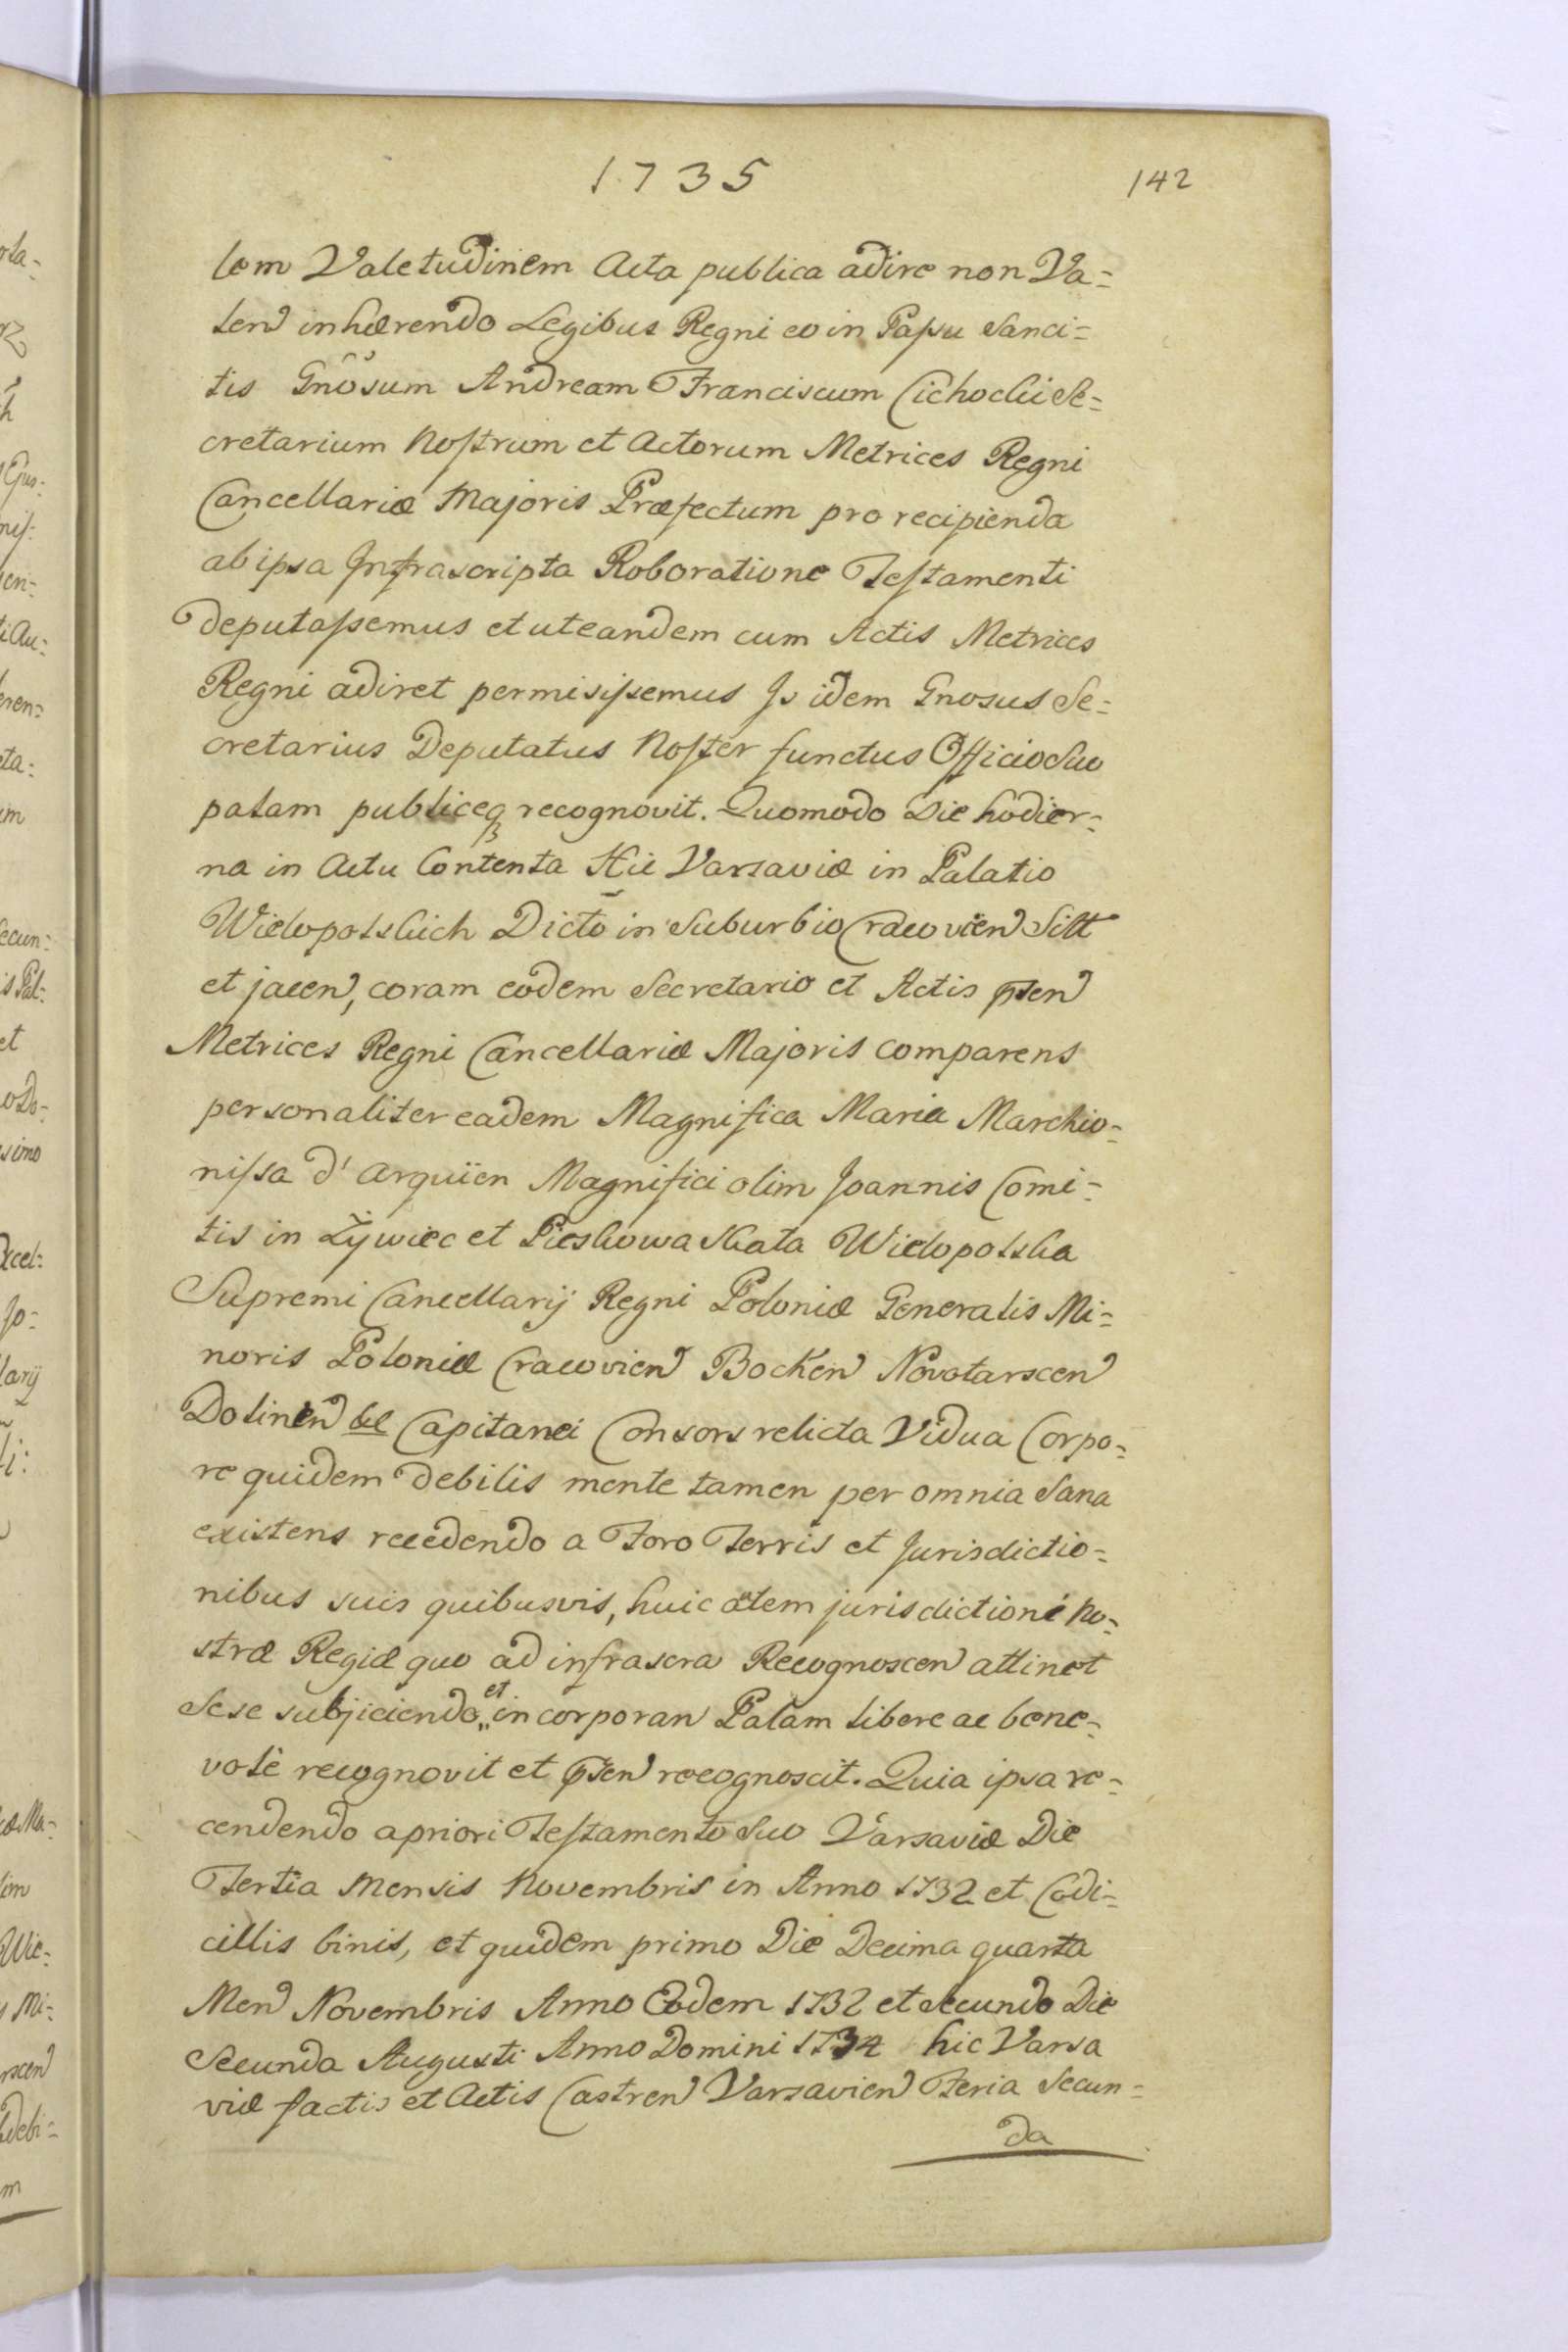 1735
142
lem Valetudinem Acta publica adire non Va=
len inhærendo Legibus Regni eo in Passu Sanci=
tis Gnosum Andream Franciscum Cichocki Se=
cretarium Nostrum et Actorum Metrices Regni
Cancellariæ Majoris Præfectum pro recipienda
ab ipsa Infrascripta Roboratione Testamenti
deputassemus et ut eandem cum Actis Metrices
Regni adiret permisissemus Is idem Gnosus Se=
cretarius Deputatus Noster functus Officio Suo
palam publiceq recognovit. Quomodo Die hodier=
na in Actu Contenta Hic Varsaviæ in Palatio
Wielopolskich Dicto in Suburbio Cracovien Sitt
et jacen, coram eodem Secretario et Actis pñsen
Metrices Regni Cancellariæ Majoris comparens
personaliter eadem Magnifica Maria Marchio=
nissa d' Arquien Magnifici olim Joannis Comi=
tis in Żywiec et Pieskowa Skała Wielopolska
Supremi Cancellarij Regni Poloniæ Generalis Mi=
noris Poloniæ Cracovien Bochen Novotarscen
Dolinen &c Capitanei Consors relicta Vidua Corpo=
re quidem debilis mente tamen per omnia Sana
existens recedendo a Foro Terris et Jurisdictio=
nibus suis quibusvis, huic atem jurisdictioni No=
stræ Regiæ quo ad infrascra Recognoscen attinet
Sese subjiciendo et incorporan Palam libere ac bene=
volè recognovit et pñsen recognoscit. Quia ipsa re=
cendendo a priori Testamento Suo Varsaviæ Die
Tertia Mensis Novembris in Anno 1732 et Codi=
cillis binis, et quidem primo Die Decima quarta
Men Novembris Anno Eodem 1732 et Secundo Die
Secunda Augusti Anno Domini 1734 hic Varsa
viæ factis et Actis Castren Varsavien Feria Secun=
da